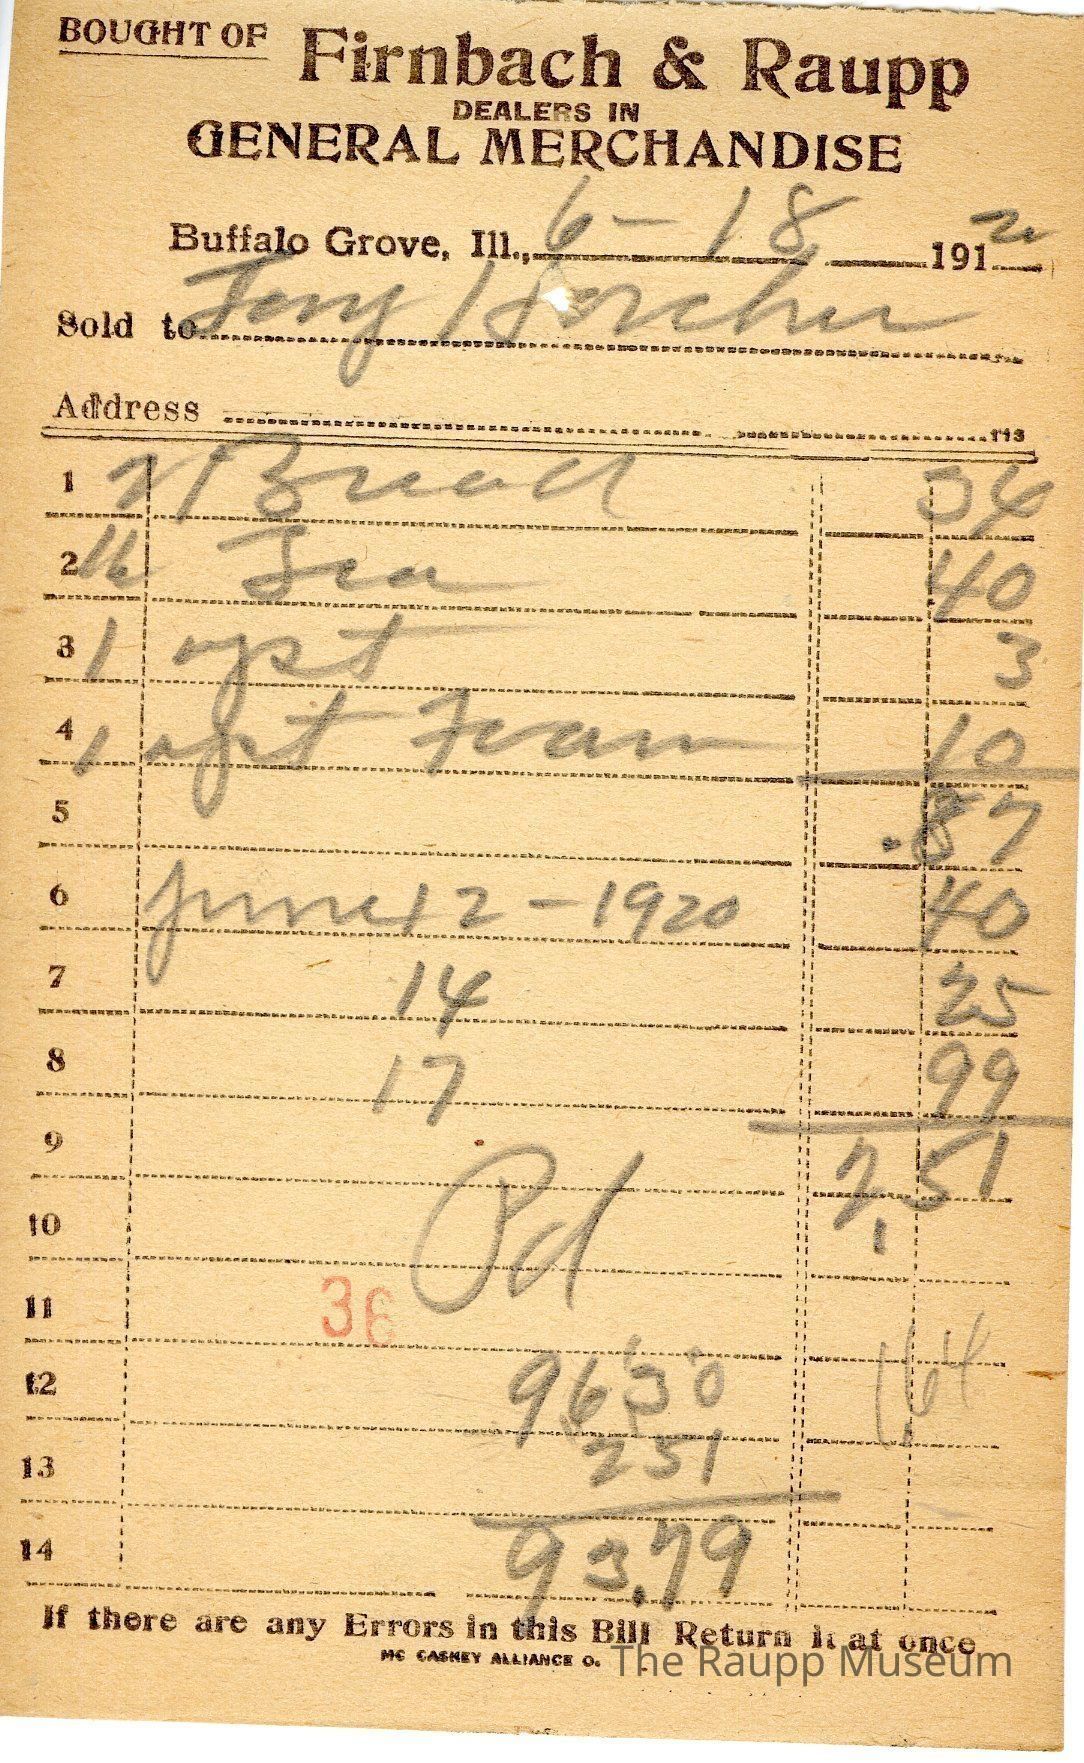 BOUGHT OF Firnbach & Raupp
DEALERS IN
GENERAL MERCHANDISE
Buffalo Grove, Ill., 6-18 191 20
Sold to Horcher
Address
113
1 2 Bread 34
2 Tea 40
3 1 3
4 1 10
5 .87
6 June 12 - 1920 40
7 14 25
8 17 99
9 2,51
10 Pd
11 36
12 9630 164
13 251
14 93.79
If there are any Errors in this Bill Return it at once
MC CASKEY ALLIANCE O.
The Raupp Museum